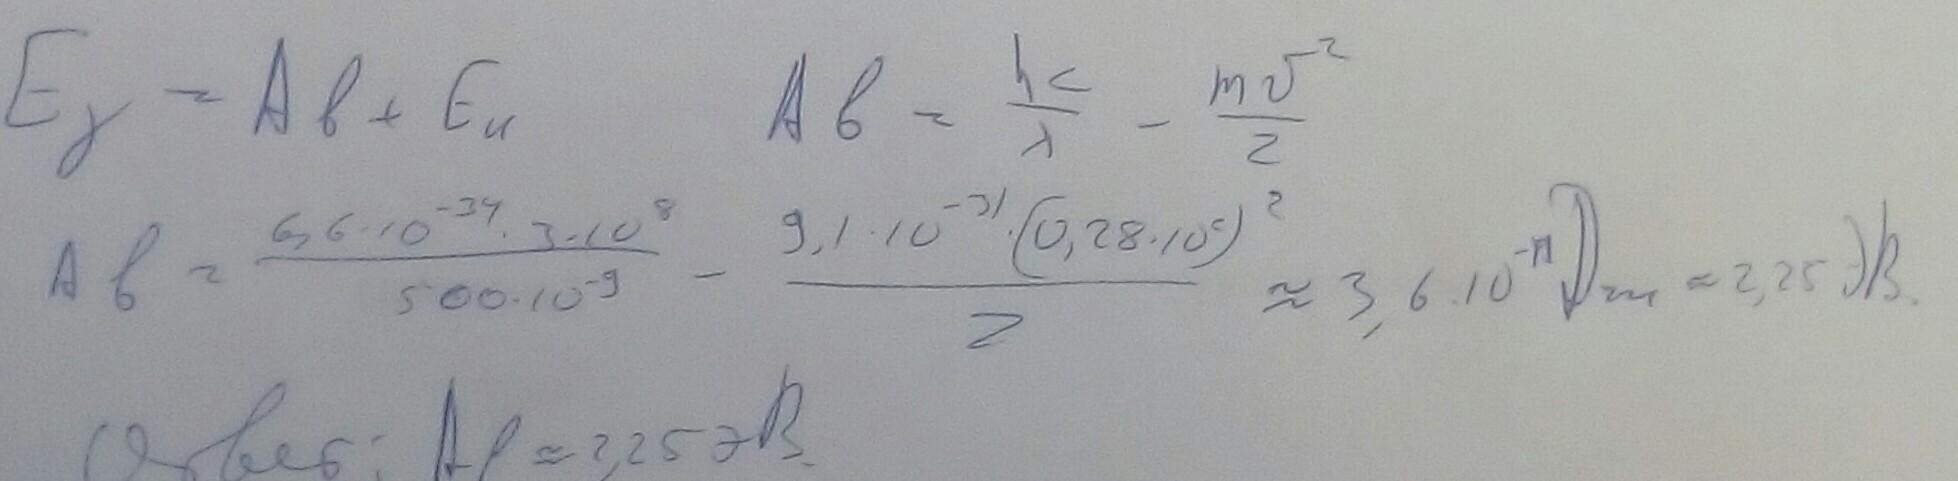 Eγ = Aв + Eк    Aв = hc/λ - mv²/2
Aв = 6,6·10⁻³⁴·3·10⁸/500·10⁻⁹ - 9,1·10⁻³¹·(0,28·10⁶)²/2 ≈ 3,6·10⁻¹⁹ Дж = 2,25 эВ.
Ответ: Aв ≈ 2,25 эВ.